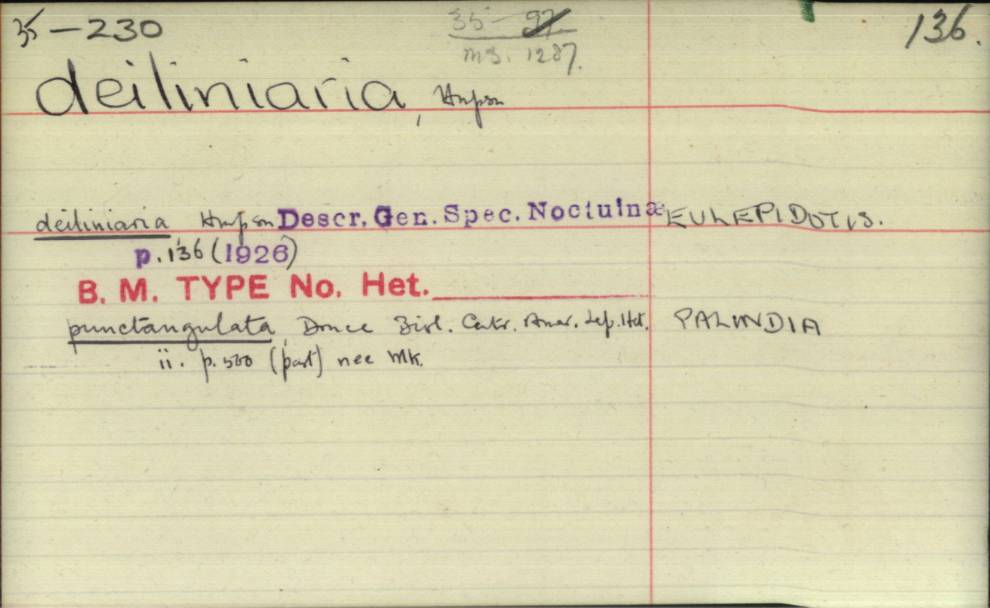 35-230
35-97
136.
ms. 1287.
deiliniaria, Hmpsn
deiliniaria Hmpsn Descr. Gen. Spec. Noctuinæ EULEPIDOTIS.
p. 136 (1926)
B. M. TYPE No. Het.
punctangulata, Druce Biol. Centr. Amer. Lep. Het. PALINDIA
ii. p. 500 (part) nec Wlk.